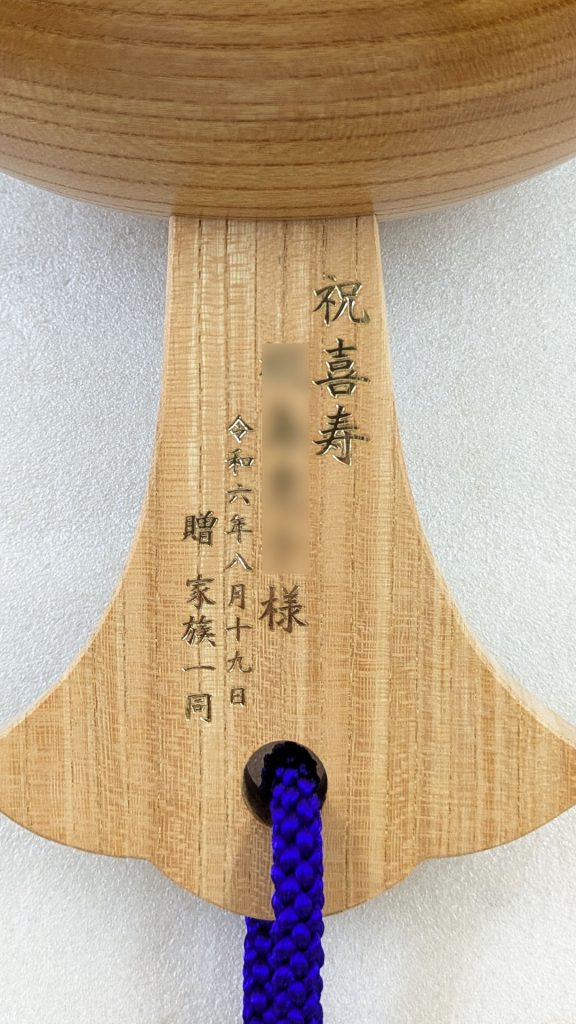 祝喜寿
様
令和六年八月十九日
贈 家族一同